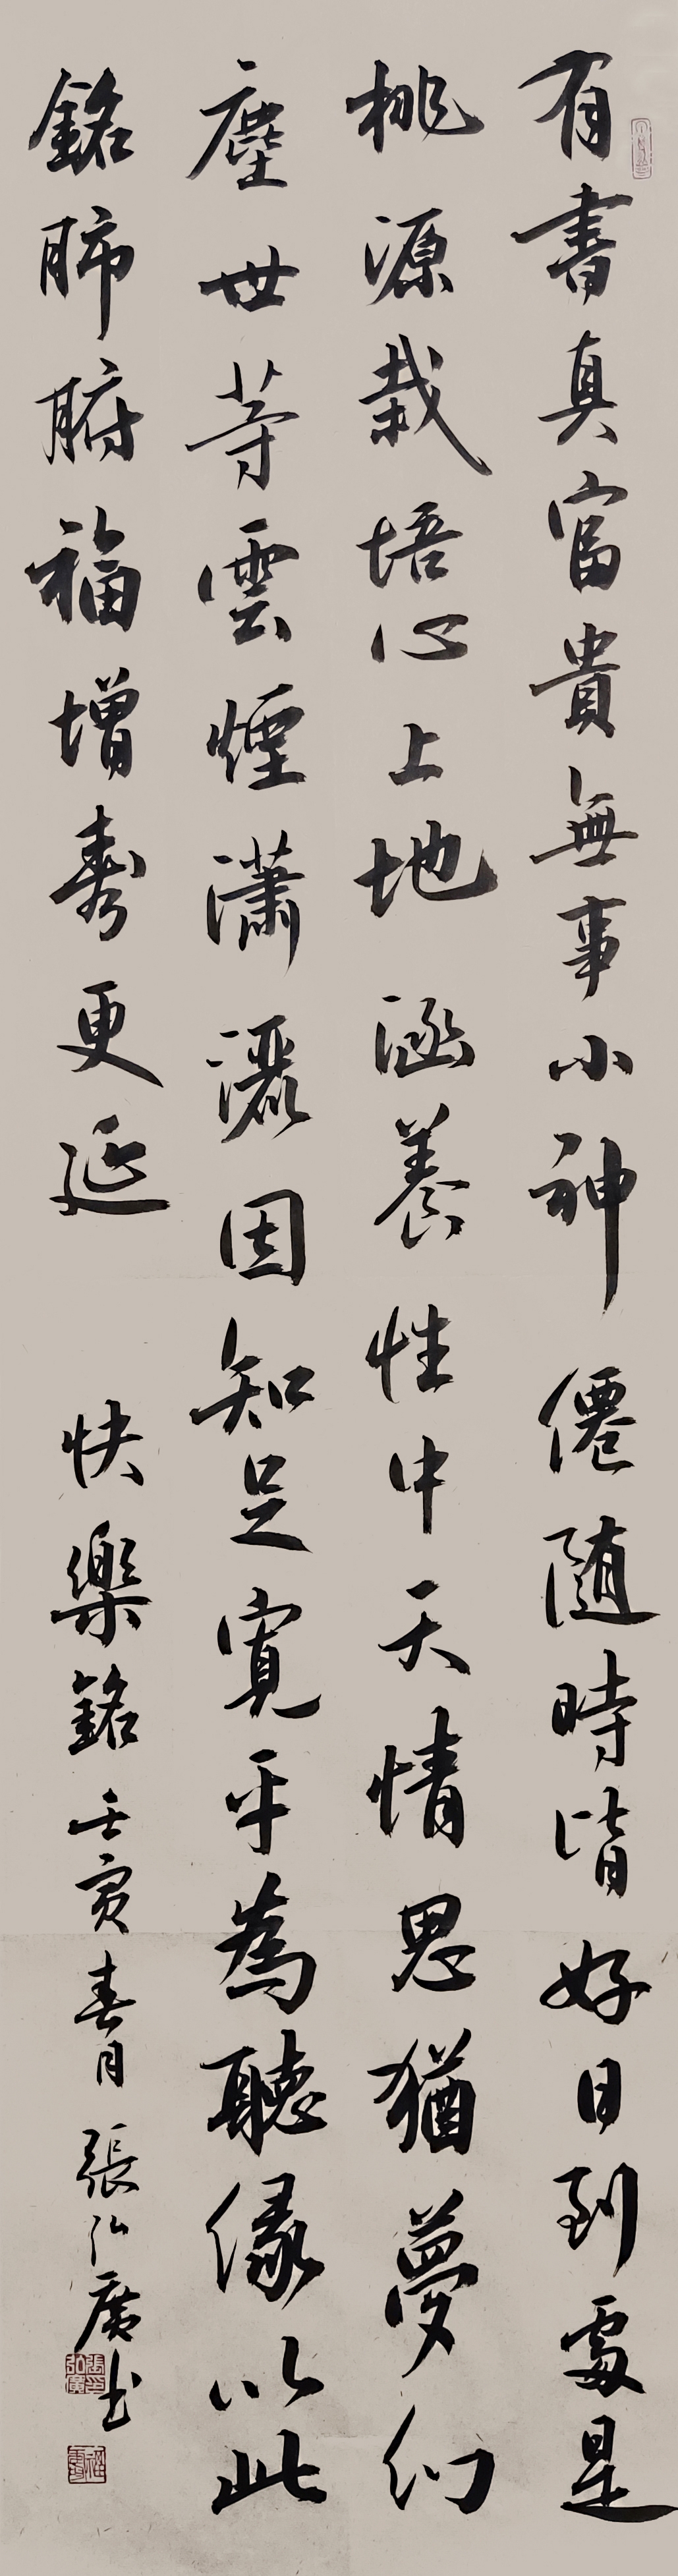 有書真富貴無事小神僊随時皆好日到處是
桃源栽培心上地涵養性中天情思猶夢幻
塵世等雲煙瀟灑因知足寬平為聽緣以此
銘肺腑福增壽更延 快樂銘 壬寅春月 張弘廣书
張弘廣印